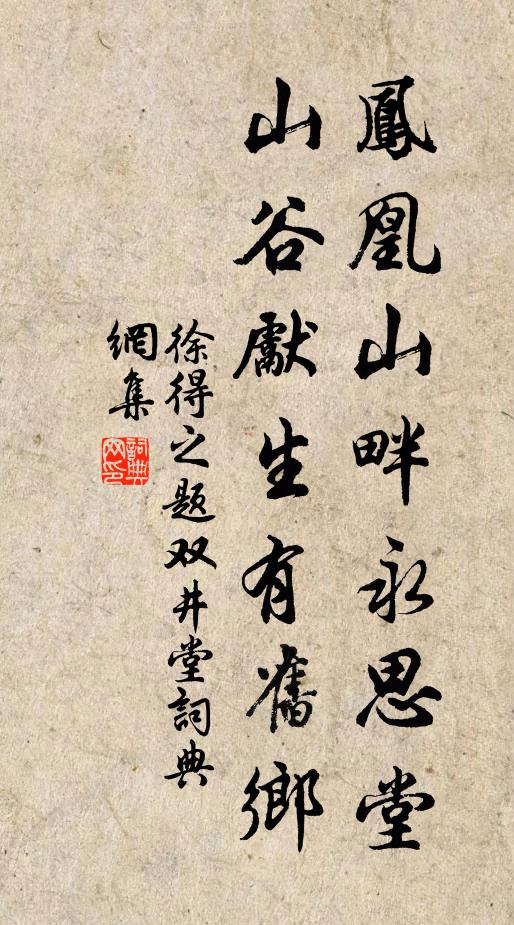 鳳凰山畔永思堂
山谷獻生有舊鄉
徐得之題双井堂詞典
網集
詞典網印